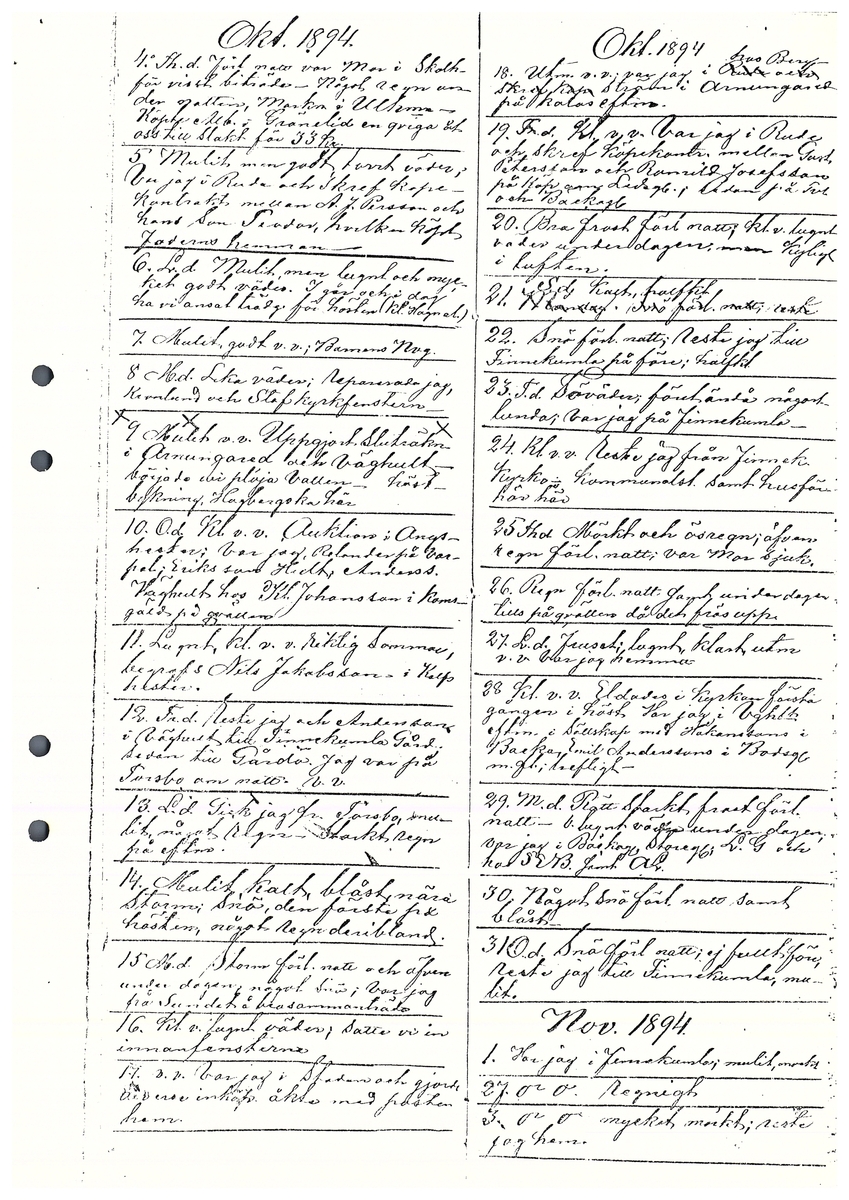 Okt. 1894.
4. Th.d. Förl. natt var Mor i Skolh-
för visst biträde – Något regn un
der natten, Markn. i Ulrhmn –
Köpte Alb. i Gränelid en qviga åt
oss till slakt för 33 kr.
5 Mulit men godt, torrt väder;
Var jag i Ruda och skref Köpe-
kontrakt mellan A. J. Persson och
hans Son Teodor, hvilken köpt
faderns hemman –
6. L.d. Mulit, men lugnt och myc-
ket godt väder. I går och i dag
ha vi ansat trädg. för hösten (kl. Hagnat.)
7. Mulit, godt v. v.; Barnens Nvg.
8 M.d. Lika väder; reparerade jag,
Kornlund och Staf kyrkfenstern –
9 Mulit v. v. Uppgjort Sluträkn
i Arnungared och Väghult –
började vi plöja Vallen – häst
Hagbergska här
10. O.d. Kl. v. v. Auktion i Angs-
hester; var jag, Rolander på
Erikssom Hidt, Anderss.
Väghult hos Kl. Johansson i Koms-
gärde på qvällen
11. Lugnt, kl. v. v. riktig Sommar,
begrafs Nils Jakobsson i Kalp
hester.
12. Fr.d. Reste jag och Andersson
i Väghult till Finnekumla Gård.
sedan till Gärdö. Jag var på
Torsbo om natt. v. v.
13. L.d. Gick jag fr. Torsbo, mu-
lit, något regn – Starkt regn
på eftm.
14. Mulit, kalt, blåst, nära
Storm; snö, den förste för
hösten, något regn deribland.
15 M.d. Storm förl. natt och äfven
under dagen, något snö; Var jag
på Sundet å brosammanträde
16. Kl. v. lugnt väder; satte vi in
innanfensterne
17. v. v. Var jag i Staden och gjorde
diverse inköp. åkte med posten
hem.
Okt. 1894
18. Utm. v. v. var jag i hos Berg-
ström i Arnungared
på kalas eftm.
19. Fr.d. Kl. v. v. Var jag i Ruda
och skref Köpekontr. mellan Gust.
Petersson och Romild Josefsson
på Köp Lidsgb.; sedan
och Backagb
20. Bra frost förl. natt; kl. v. lugnt
väder under dagen, men kyligt
i luften.
21. Sdg Kalt, halfkl.
Snö förl. natt; reste
22. Snö förl. natt; reste jag till
Finnekumla på före; halfkl.
23. T.d. Töväder; före ändå någor-
lunda; Var jag på Finnekumla –
24. Kl. v. v. Reste jag från Finnek.
Kyrko- o. Kommunalst. samt husför
hör här
25 Thd Mörkt och ösregn; äfven
regn förl. natt; var Mor sjuk.
26. Regn förl. natt samt under dagen
tills på qvällen då det frös upp.
27. L.d. Fruset, lugnt, klart utm
v. v. var jag hemma
28 Kl. v. v. Eldades i kyrkan första
gången i höst. Var jag i Vght
eftm. i sällskap med Håkanssons i
Backa, Emil Anderssons i Bodsgb
m. fl.; trefligt –
29. M.d. Rätt starkt frost förl.
natt – v. lugnt väder under dagen,
var jag i Backag, Storegb, L. G och
hos S. V. B. samt AL.
30. Något snö förl. natt samt
blåst
31 O.d. Snö förl. natt; ej fullt före,
reste jag till Finnekumla, mu-
lit.
Nov. 1894
1. Var jag i Finnekumla; mulit, mörkt.
2. F. o o. regnigt
3. o o. mycket mörkt; reste
jag hem.